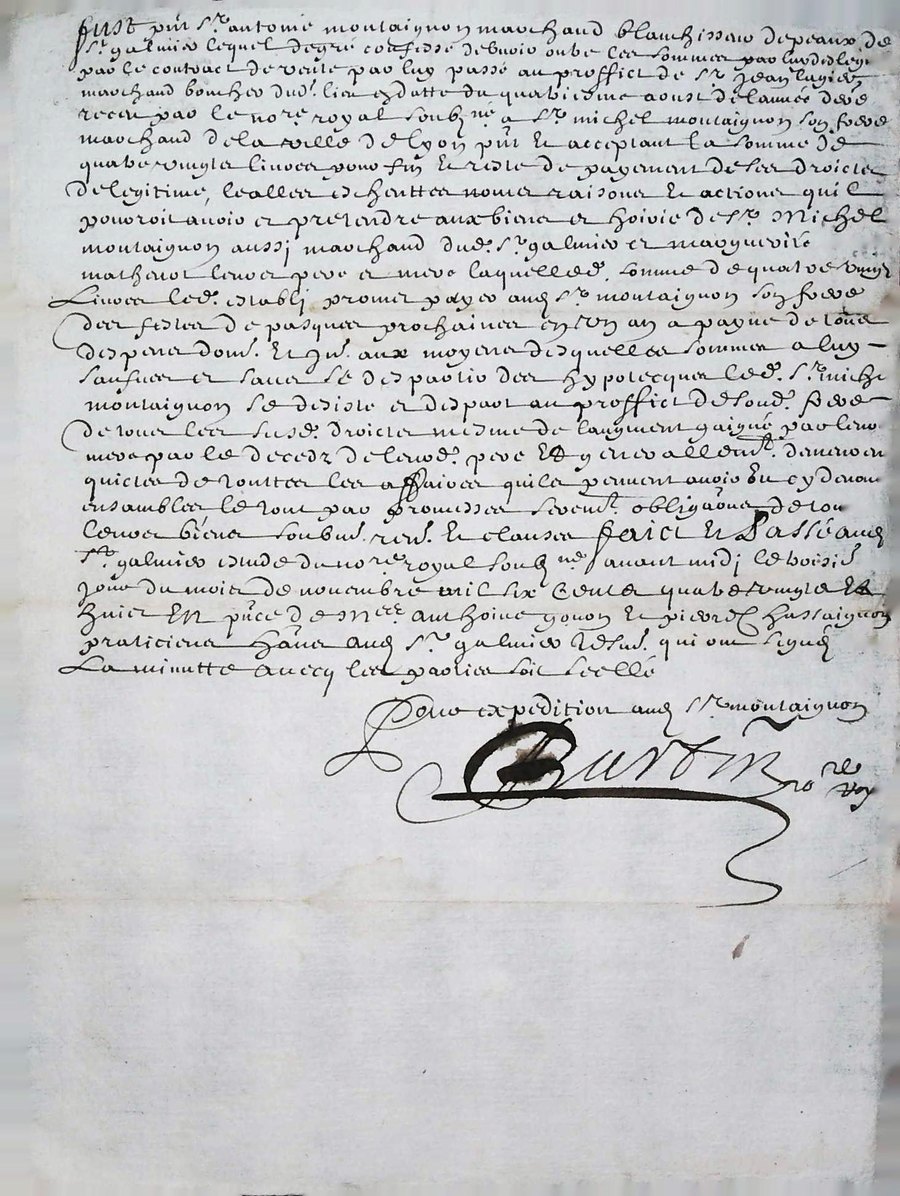 fust pnt Sr. antoine montaignon marchand blanchisseur de peaux de
St. galmier lequel de gre confesse debvoir outre les sommes par luy
par le contract de vente par luy passé au proffict de Sr. jean
marchand boucher dud. lieu en datte du quatriesme aoust de l'année
receu par le nore. royal soubzné a Sr. michel montaignon son frere
marchand de la ville de lyon pnt et acceptant la somme de
quatre vingts livres pour fin et reste de payement de ses droicts
de legitime, escheuttes noms raisons et actions quil
pourroit avoir et pretendre aux biens et hoirie de Sr. Michel
montaignon aussi marchand dud. St. galmier et marguerite
mathenot leurs pere et mere laquelle d. somme de quatre vingts
Livres led. establi promet payer aud Sr. montaignon son frere
des festes de pasques prochaines en un an a payne de tous
despens dom. et in. aux moyens desquelles sommes a luy
saufves et sans se despartir des hypotecques led. Sr. michel
montaignon se desiste et despart au proffict de sond. frere
de tous les susd. droicts mesme de laugment gaigné par leur
mere par le decedz de leurd. pere et generallemt. demeurent
quictes de touttes les affaires quils peuvent avoir eu cy devant
ensembles le tout par promesses sermt. obligaons de tous
leurs biens soubm. ren. et clauses faict et Passé aud
St. galmier estude du nore. royal soubzné avant midi le
jour du mois de novembre mil six Cents quatre vingts et
huict en pnce de Mers. anthoine gonon et pierre Chassaignon
praticiens hans aud St. galmier qui ont signé
La minutte avecq les parties soit scellé
Pour expedition aud Sr. montaignon
Burtin nore roy